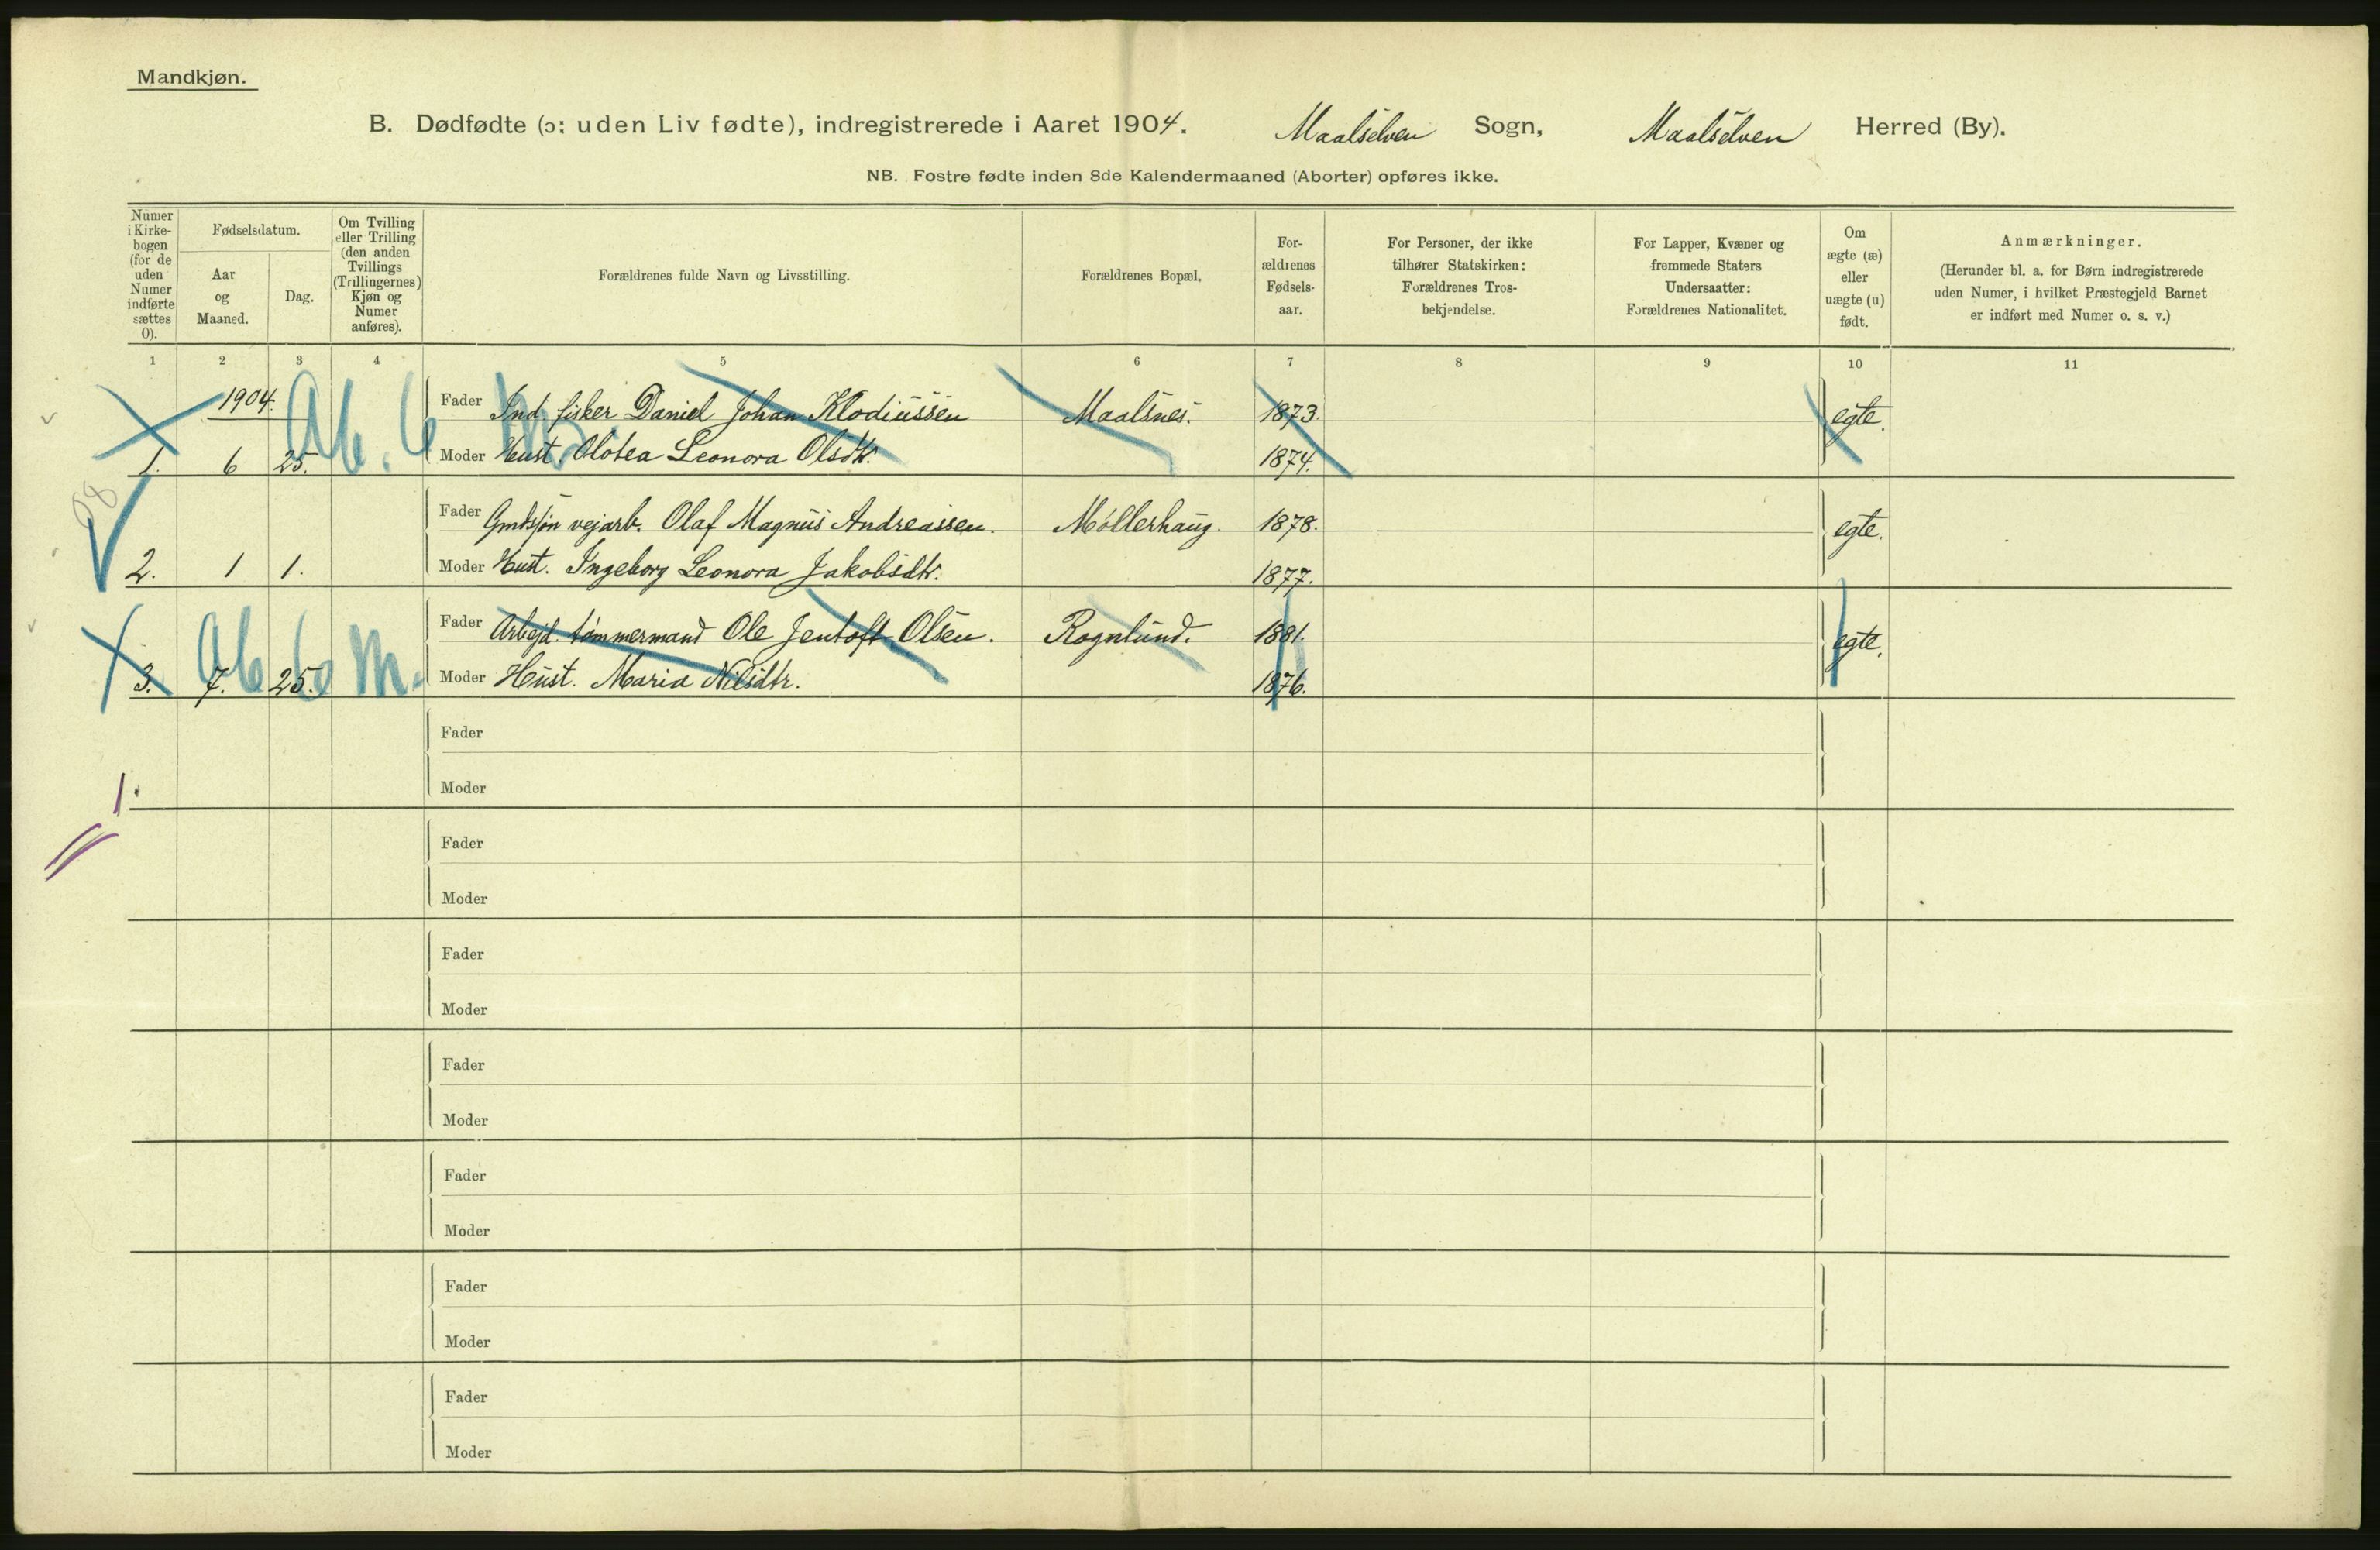 Mandkjøn.
B. Dødfødte (ɔ: uden Liv fødte), indregistrerede i Aaret 1904. Maalselven Sogn, Maalselven Herred (By).
NB. Fostre fødte inden 8de Kalendermaaned (Aborter) opføres ikke.
Numer i Kirke-bogen (for de uden Numer indførte sættes 0).
Fødselsdatum.
Aar og Maaned.
Dag.
Om Tvilling eller Trilling (den anden Tvillings (Trillingernes) Kjøn og Numer anføres).
Forældrenes fulde Navn og Livsstilling.
Forældrenes Bopæl.
For-ældrenes Fødsels-aar.
For Personer, der ikke tilhører Statskirken: Forældrenes Tros-bekjendelse.
For Lapper, Kvæner og fremmede Staters Undersaatter: Forældrenes Nationalitet.
Om ægte (æ) eller uægte (u) født.
Anmærkninger.
(Herunder bl. a. for Børn indregistrerede uden Numer, i hvilket Præstegjeld Barnet er indført med Numer o. s. v.)
1 2 3 4 5 6 7 8 9 10 11
1904. Ab. 6 M.
Fader Ind. fisker Daniel Johan Klodiussen Maalsnes. 1873. egte.
1. 6 25. Moder Hust. Olotea Leonora Olsdtr. 1874.
98
Fader Gmdsøn vejarb. Olaf Magnus Andreassen. Møllerhaug. 1878. egte.
2. 1 1. Moder Hust. Ingeborg Leonora Jakobsdtr. 1877.
Ab 6 M.
Fader Arbejd. tømmermand Ole Jentoft Olsen. Rognlund. 1881. egte.
3. 7. 25. Moder Hust. Maria Nilsdtr. 1876.
Fader
1. Moder
Fader
Moder
Fader
Moder
Fader
Moder
Fader
Moder
Fader
Moder
Fader
Moder